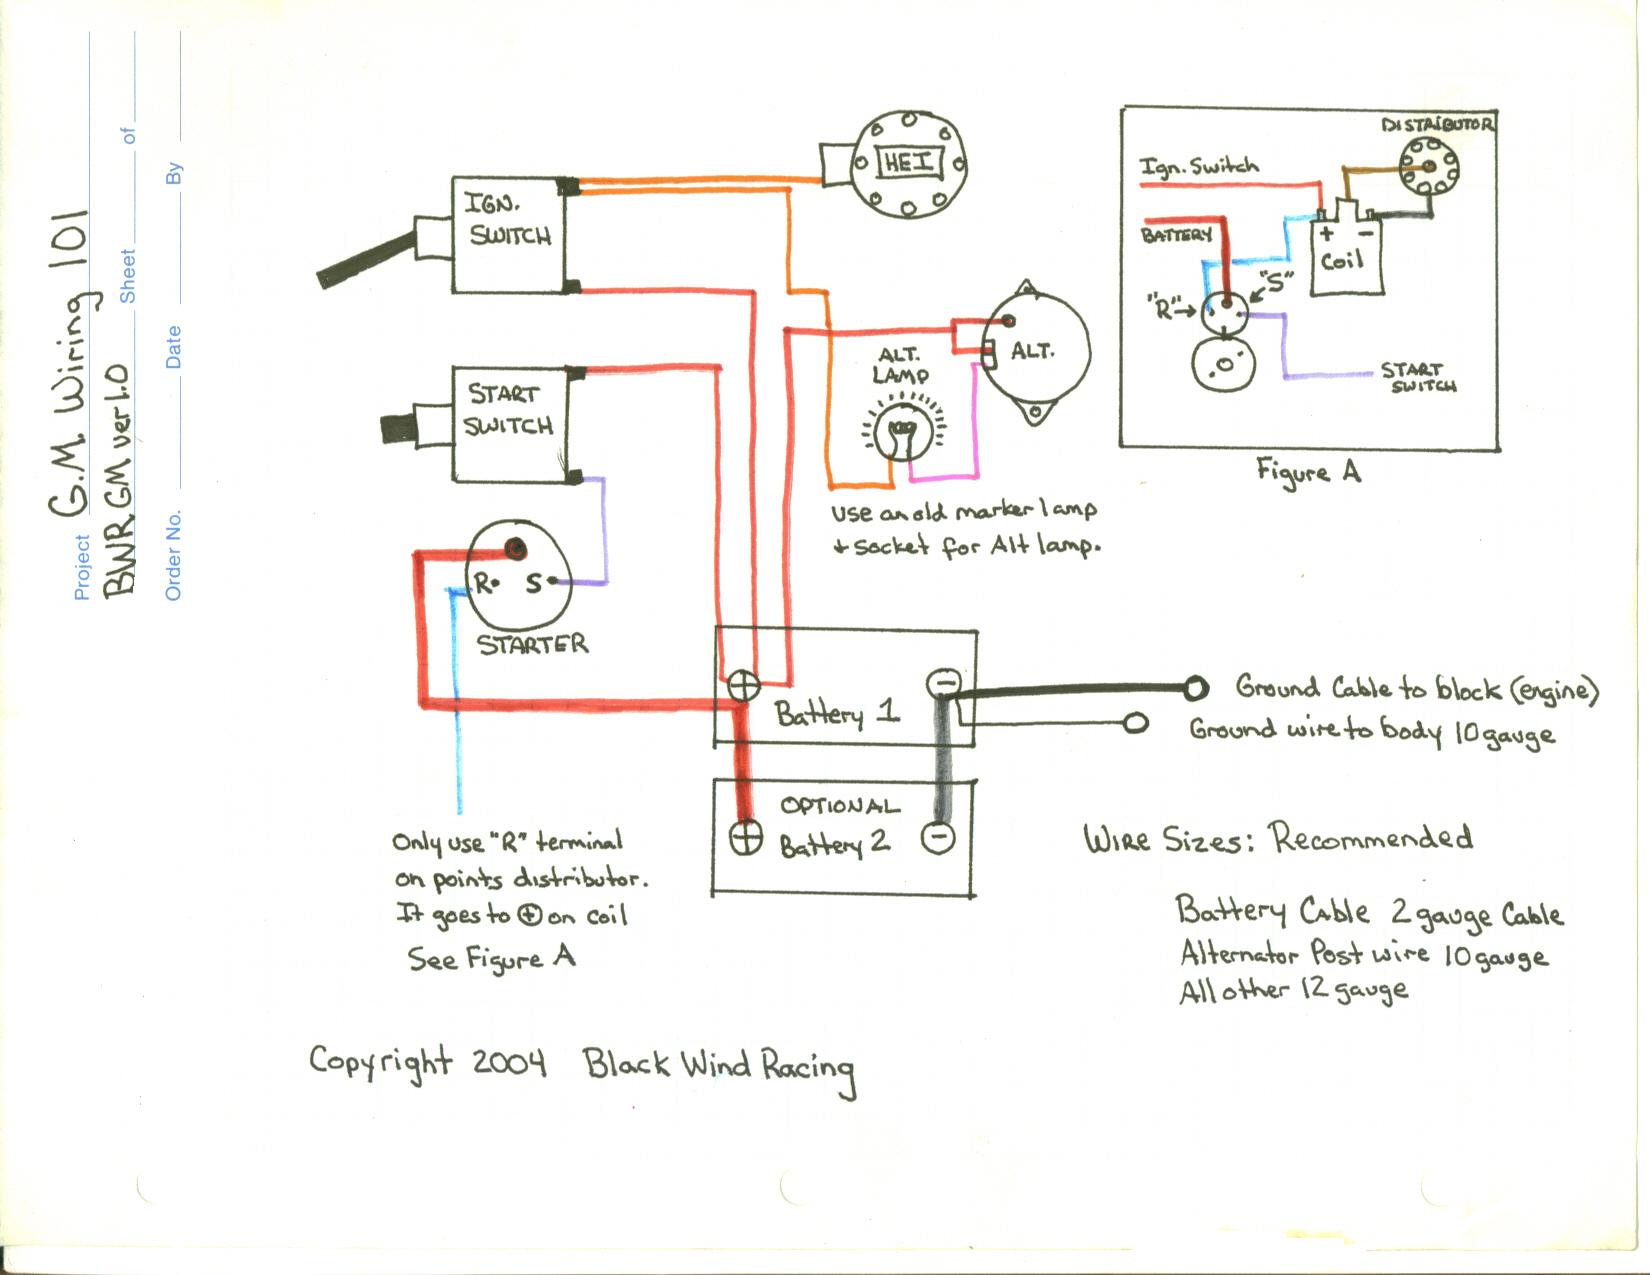 Project G.M. Wiring 101
BWR GM ver 1.0 Sheet of
Order No. Date By
IGN.
SWITCH
HEI
START
SWITCH
ALT.
LAMP
ALT.
use an old marker lamp
+ socket for Alt lamp.
R S
STARTER
+ -
Battery 1
OPTIONAL
+ Battery 2 -
Ground Cable to block (engine)
Ground wire to body 10 gauge
Only use "R" terminal
on points distributor.
It goes to + on coil
See Figure A
DISTRIBUTOR
Ign. Switch
BATTERY
+ -
Coil
"S"
"R"→
START
SWITCH
Figure A
Wire Sizes: Recommended
Battery Cable 2 gauge Cable
Alternator Post wire 10 gauge
All other 12 gauge
Copyright 2004 Black Wind Racing